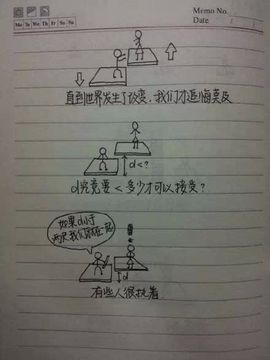 Memo No.
Mo Tu We Th Fr Sa Su
Date
直到世界发生了改变，我们才追悔莫及
d<?
d究竟要<多少才可以接受？
如果d小于
两尺我们就在一起
d
有些人很执着